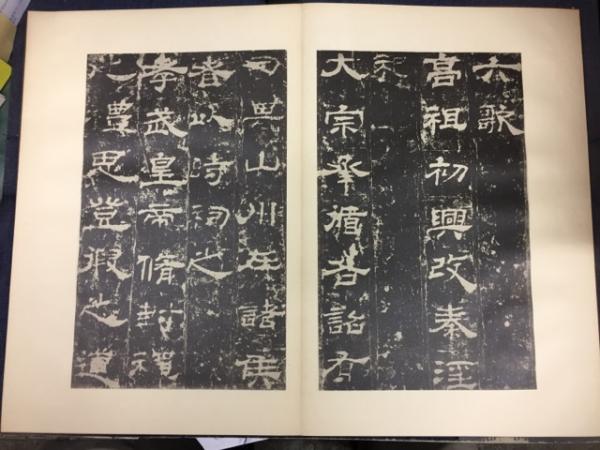 六歌
高祖初興改秦淫
祀
大宗承循各詔有
司其山川在諸侯
者以時祠之
孝武皇帝脩封禪
之豊思登徦之道